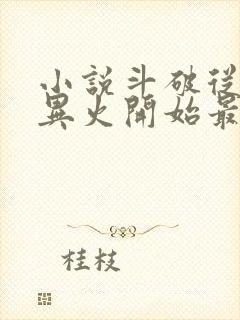 小說斗破從
異火開始最
桂枝